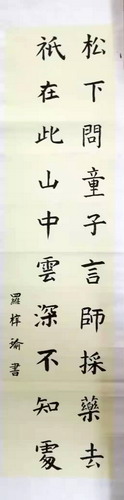 松下問童子言師採藥去
祇在此山中雲深不知處
羅梓瑜書